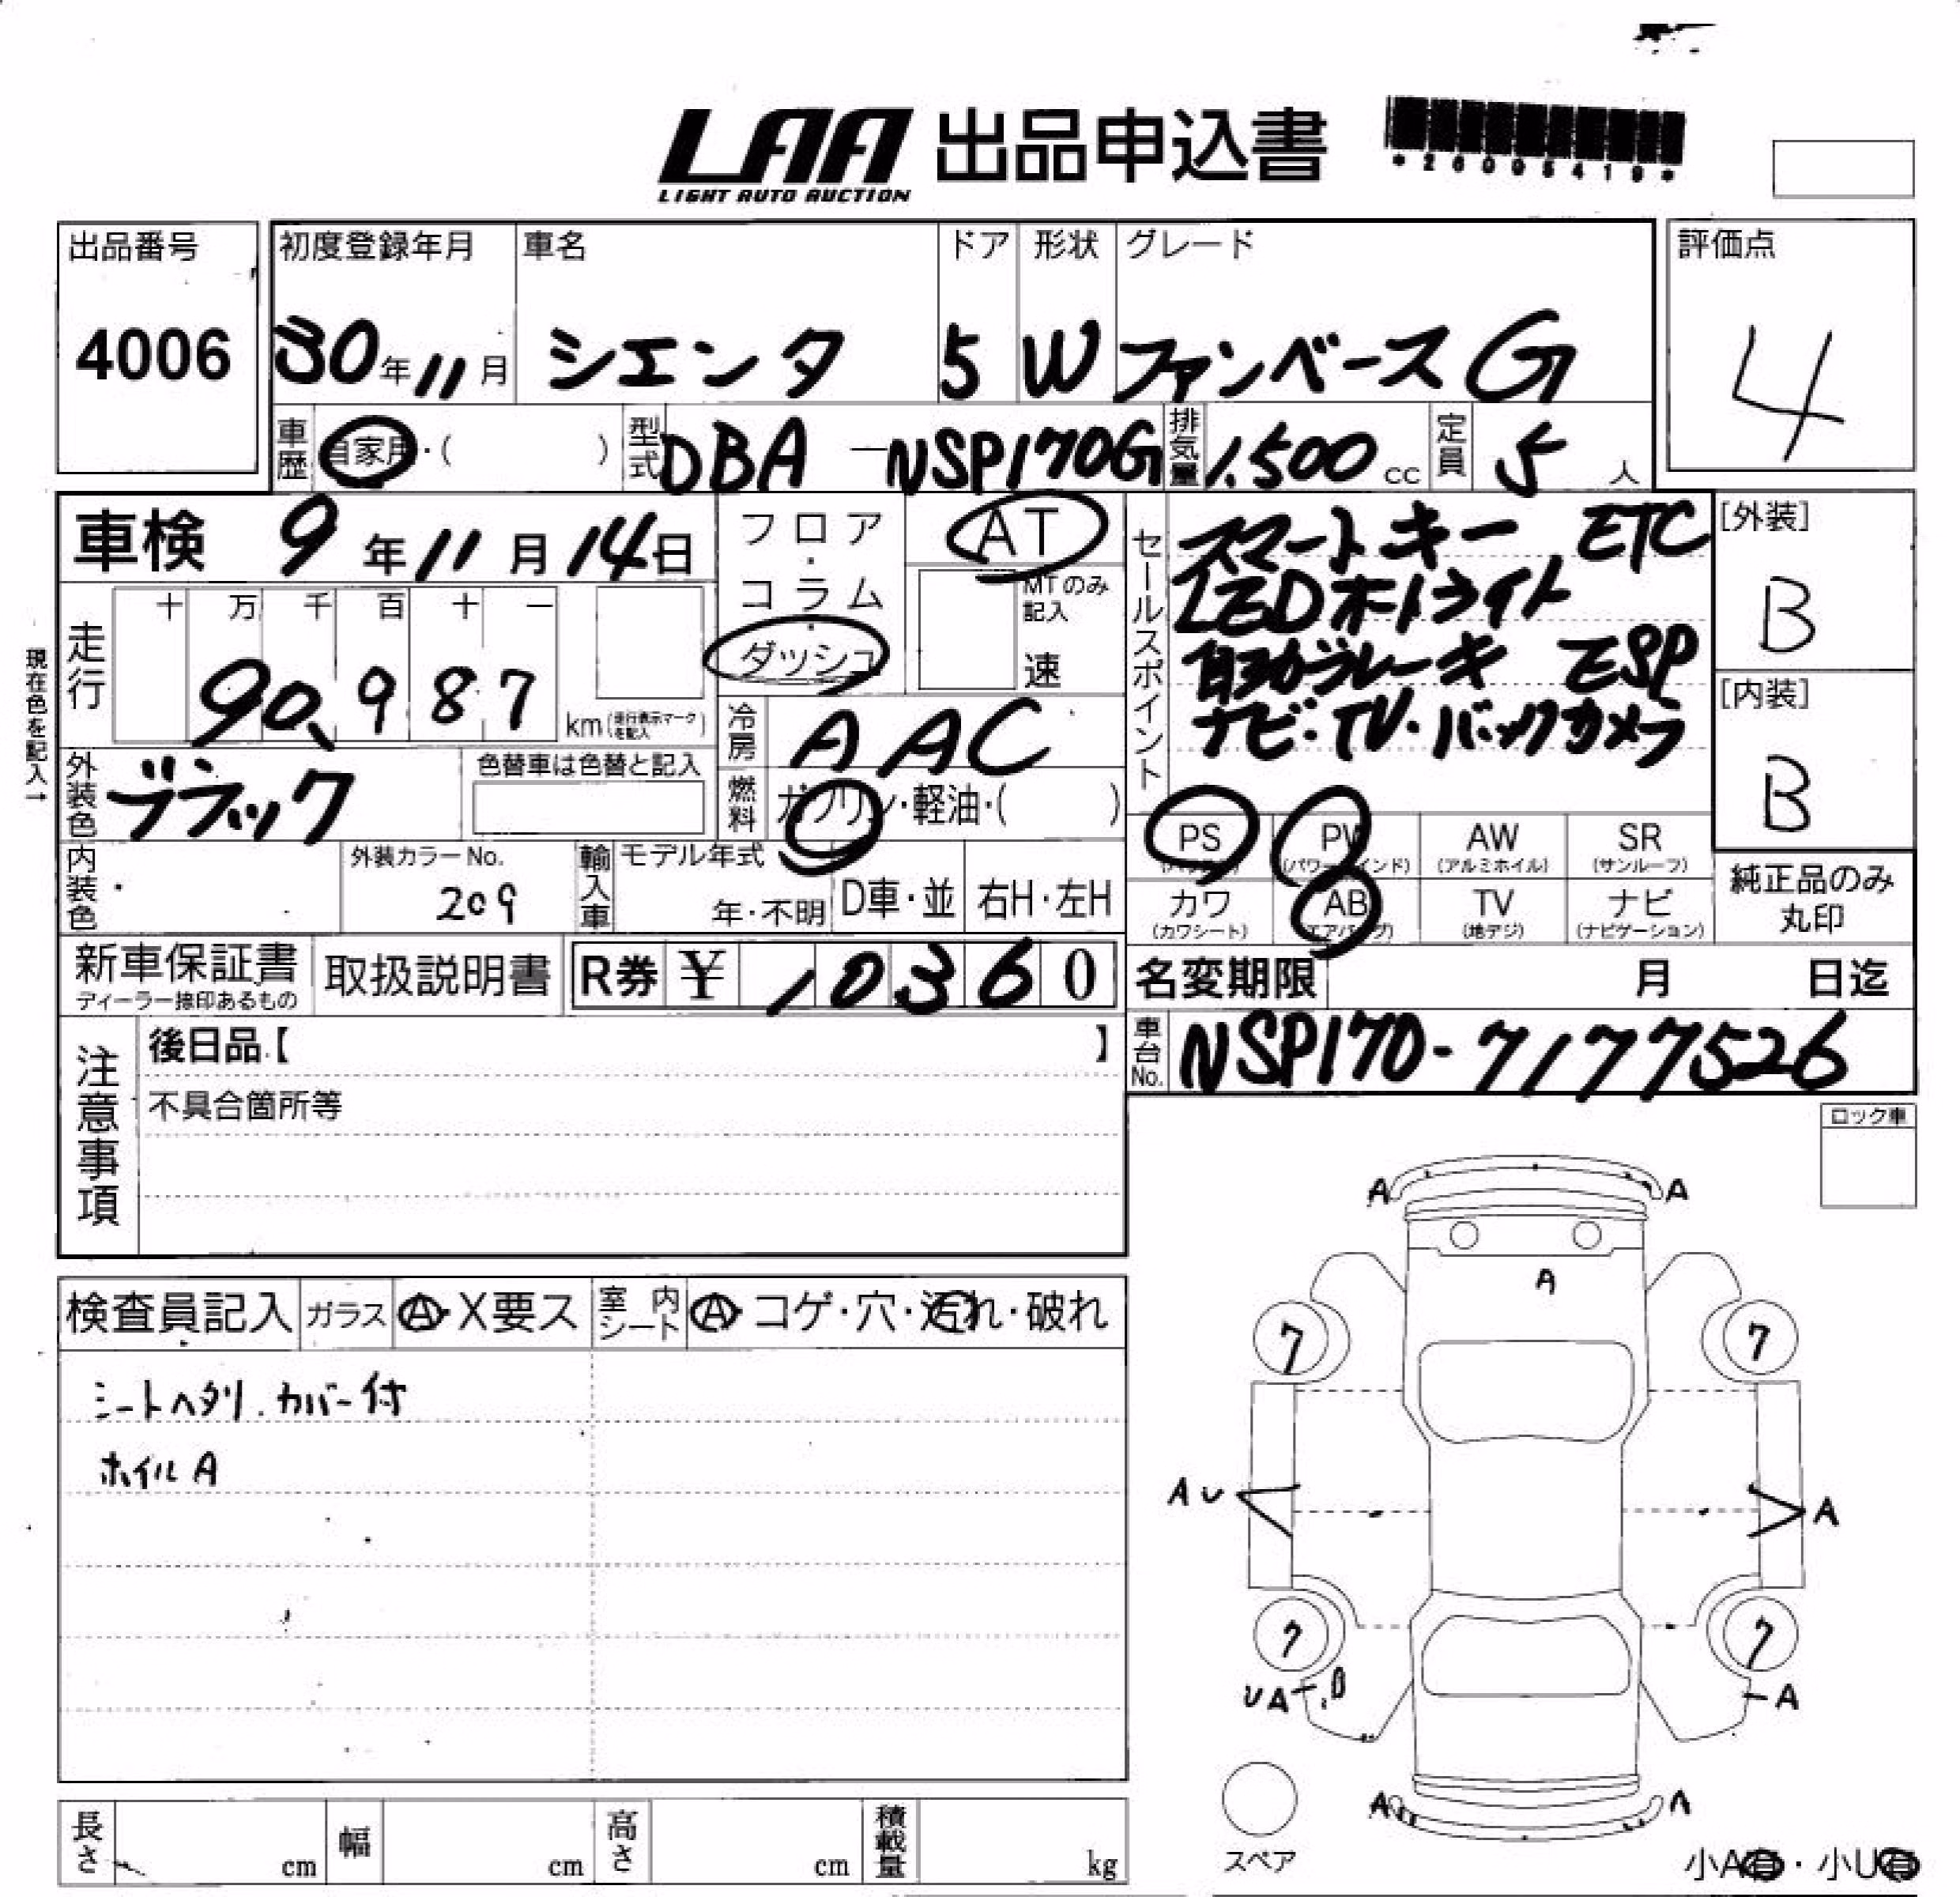 LAA 出品申込書
LIGHT AUTO AUCTION
*26005419*
出品番号 初度登録年月 車名 ドア 形状 グレード 評価点
4006 30年11月 シエンタ 5 W ファンベースG 4
車歴 自家用・( ) 型式 DBA-NSP170G 排気量 1.500cc 定員 5人
車検 9年11月14日 フロア・コラム・ダッシュ AT セールスポイント スマートキー ETC [外装]
MTのみ記入 速 LEDホトライト B
走行 十 万 千 百 十 一 自動ブレーキ ESP [内装]
現在色を記入→
90,987 km(走行表示マークを記入) ナビ・TV・バックカメラ B
冷房 AAC
外装色 ブラック 色替車は色替と記入 燃料 ガソリン・軽油・( )
PS(パワステ) PW(パワーウインド) AW(アルミホイル) SR(サンルーフ)
内装色 外装カラーNo. 209 輸入車 モデル年式 年・不明 D車・並 右H・左H
カワ(カワシート) AB(エアバッグ) TV(地デジ) ナビ(ナビゲーション) 純正品のみ丸印
新車保証書 ディーラー捺印あるもの 取扱説明書 R券 ¥ 10360 名変期限 月 日迄
注意事項 後日品【 】 車台No. NSP170-7177526
不具合箇所等
ロック車
検査員記入 ガラス A・X要ス 室内シート A・コゲ・穴・汚れ・破れ
シートヘタリ.カバー付
ホイルA
A A
A
7 7
AU A
7 7
UA B A
A A
スペア
長さ cm 幅 cm 高さ cm 積載量 kg
小A有・小U有